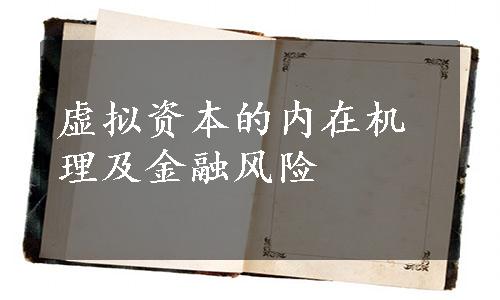 虚拟资本的内在机
理及金融风险